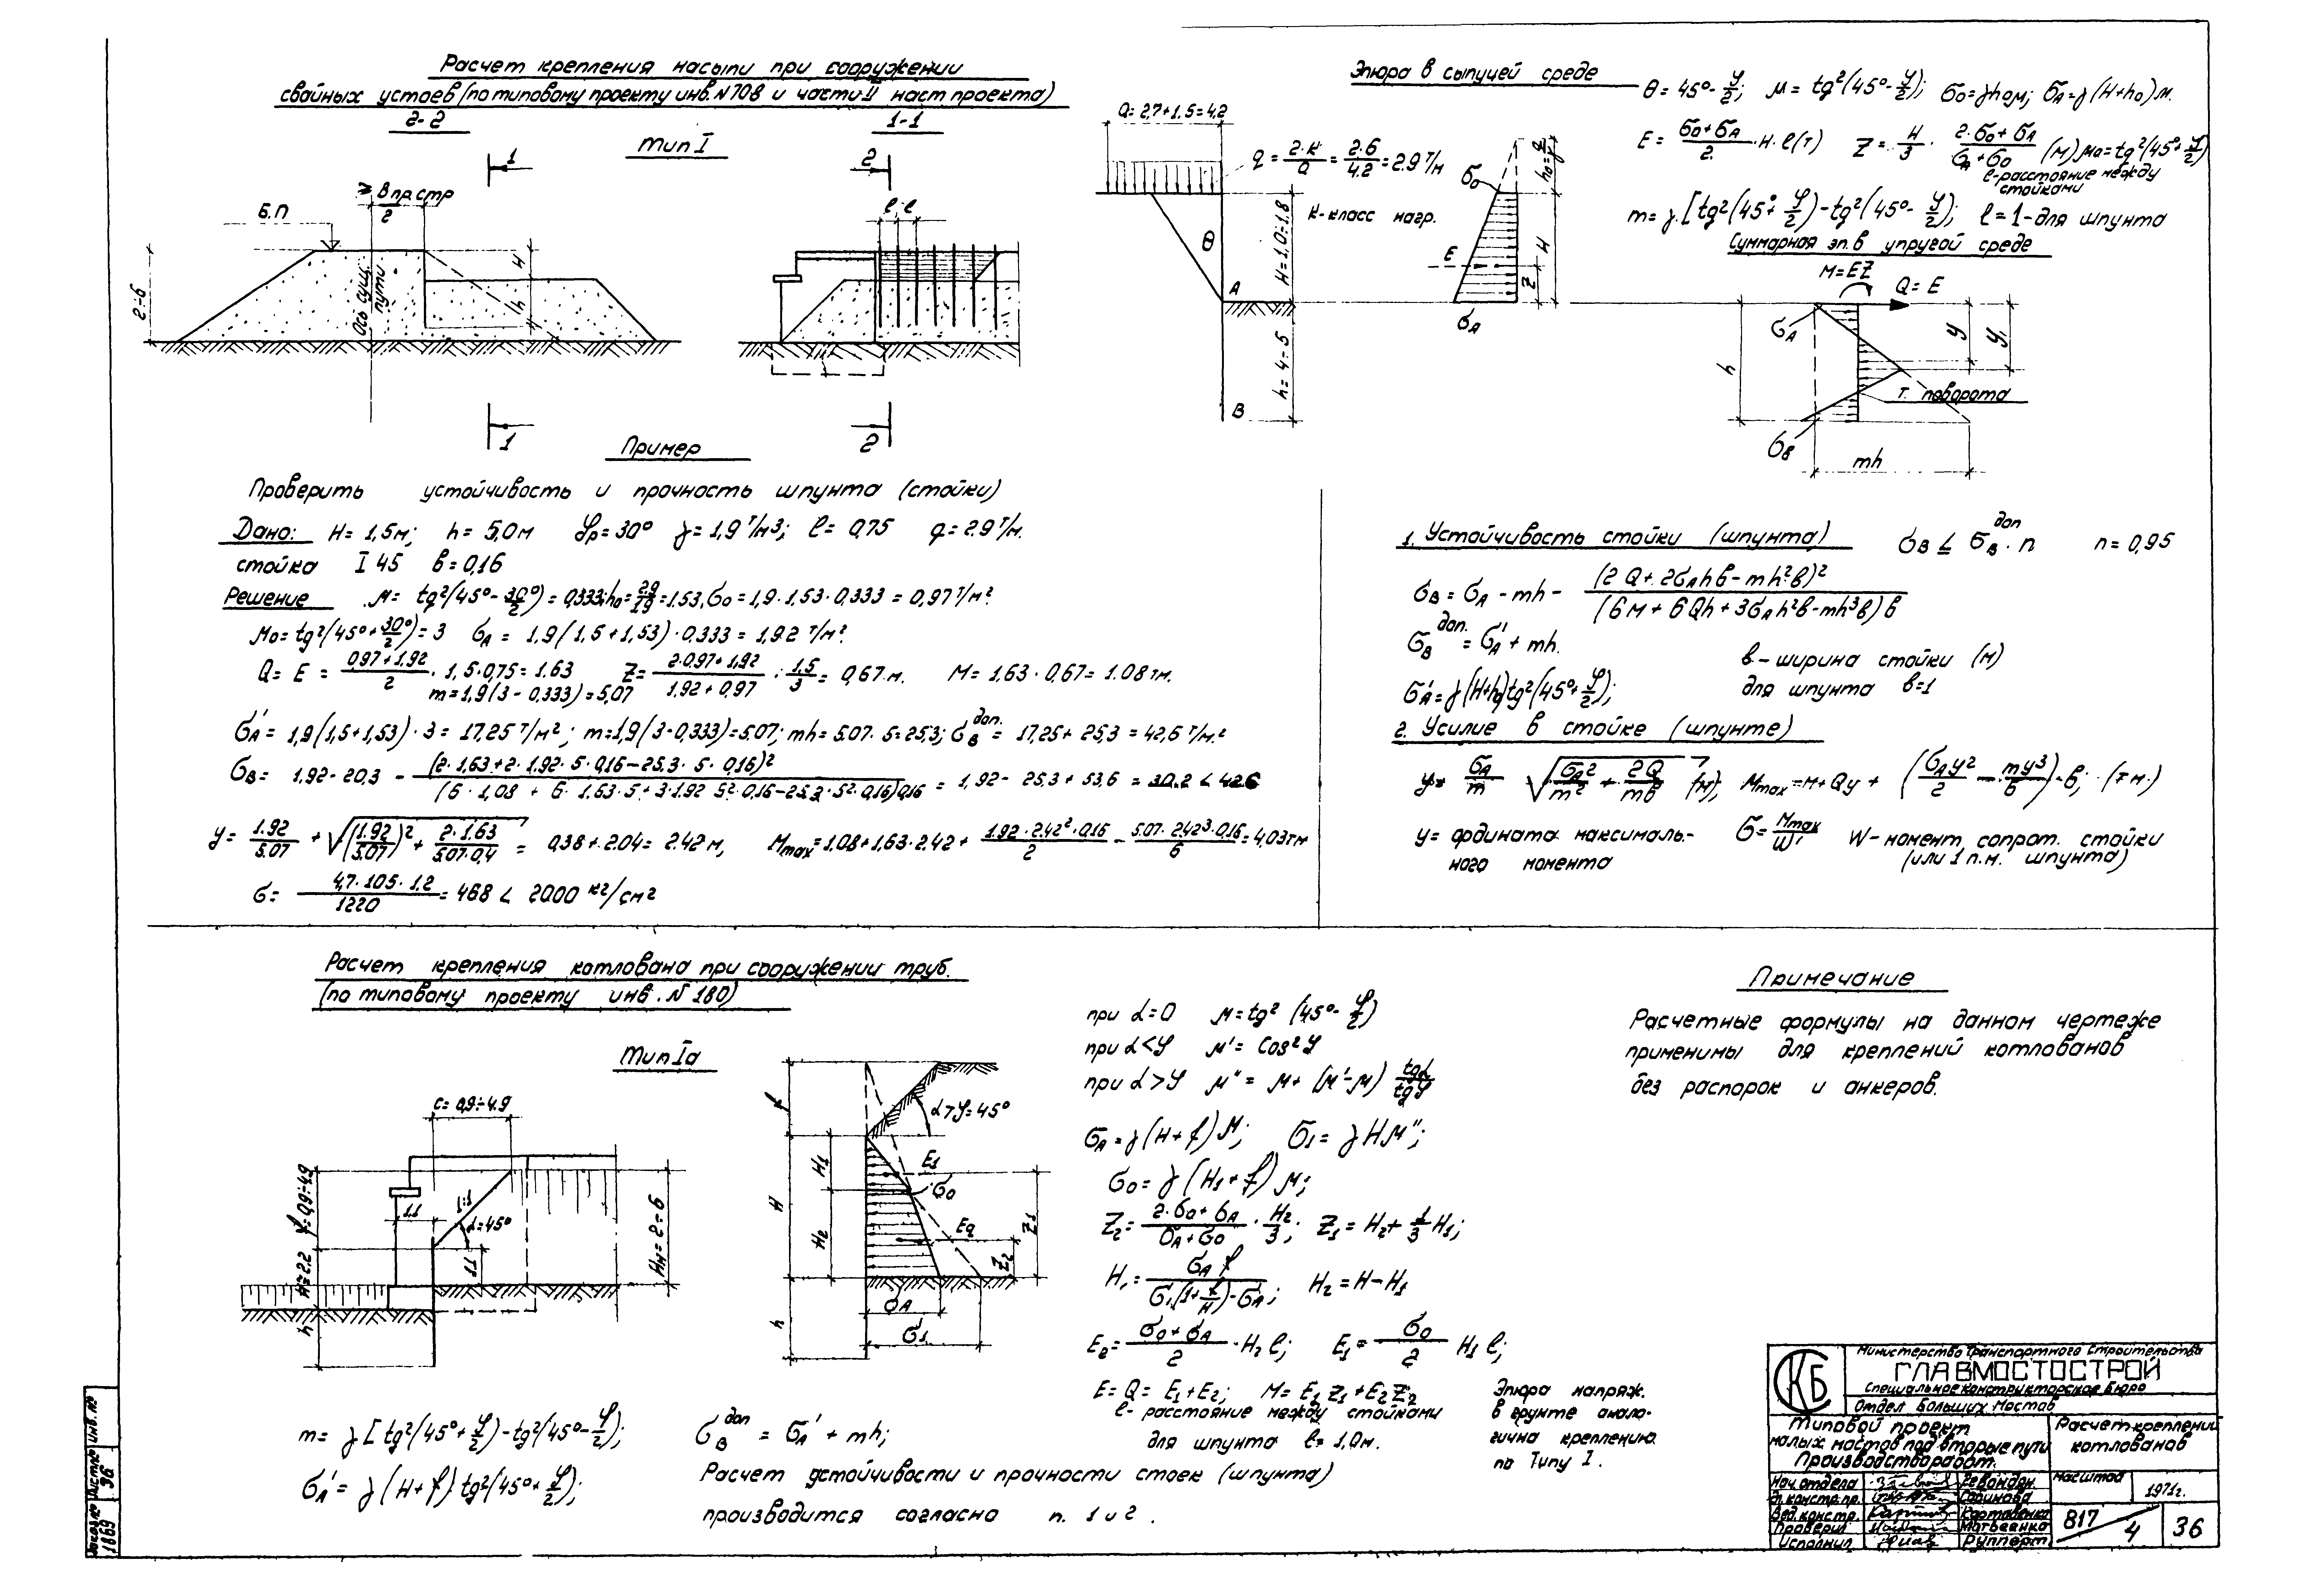 Расчет крепления насыпи при сооружении
свайных устоев (по типовому проекту инв. N 708 и части II наст проекта)
2-2
1-1
Тип I
1
2
≥ Впр.стр
2
Б.П
2÷6
Ось сущ. пути
H
h
l l
1
2
Эпюра в сыпучей среде
θ = 45°- φ/2; м = tg²(45°- φ/2); σ₀ = γh₀м; σA = γ(H+h₀)м.
Q = 2,7+1,5 = 4,2
q = 2·K/Q = 2·6/4.2 = 2.9 т/м
K-класс нагр.
θ
A
B
H=1.0÷1.8
h= 4÷5
σ₀
E
σA
h₀ = q/γ
H
Z
E = (σ₀+σA)/2 · H · l (т) Z = H/3 · (2·σ₀+σA)/(σA+σ₀) (м) м₀ = tg²(45°+ φ/2)
l-расстояние между
стойками
m = γ·[tg²(45°+ φ/2) - tg²(45°- φ/2); l = 1-для шпунта
Суммарная эп. в упругой среде
M=EZ
Q = E
σA
h
y
y₁
т. поворота
σB
mh
Пример
Проверить устойчивость и прочность шпунта (стойки)
Дано: H = 1,5м; h = 5,0м φр = 30° γ = 1,9 т/м³; l = 0,75 q = 2.9 т/м.
стойка I 45 в = 0,16
Решение м = tg²(45°- 30°/2) = 0,333; h₀ = 2.9/1.9 = 1.53, σ₀ = 1,9·1,53·0,333 = 0,97 т/м².
м₀ = tg²(45°+ 30°/2) = 3 σA = 1,9(1,5+1,53)·0,333 = 1,92 т/м².
Q = E = (0,97+1,92)/2 · 1,5·0,75 = 1.63 Z = (2·0,97+1,92)/(1.92+0,97) · 1,5/3 = 0,67 м. M = 1,63·0,67 = 1.08 тм.
m = 1,9(3-0,333) = 5,07
σA' = 1,9(1,5+1,53)·3 = 17,25 т/м²; m = 1,9(3-0,333) = 5.07; mh = 5.07·5 = 25,3; σB доп. = 17,25+25,3 = 42,6 т/м².
σB = 1.92-20,3 - (2·1,63+2·1.92·5·0,16-25.3·5·0,16)² / (6·1,08+6·1.63·5+3·1.92 5²·0,16-25,3·5²·0,16)0,16 = 1,92-25.3+53,6 = 30.2 < 42.6
y = 1.92/5.07 + √((1.92/5.07)² + 2·1.63/5.07·0,4) = 0,38+2.04 = 2.42 м, Mmax = 1.08+1,63·2.42 + 1.92·2.42²·0,16/2 - 5.07·2.42³·0,16/6 = 4,03 тм
σ = 4,7·105·1.2/1220 = 468 < 2000 кг/см²
1. Устойчивость стойки (шпунта) σB ≤ σB доп · n n = 0,95
σB = σA - mh - (2Q+2σAhв-mh²в)² / (6M+6Qh+3σAh²в-mh³в)в
σB доп. = σA' + mh.
в-ширина стойки (м)
для шпунта в=1
σA' = γ(H+h₀)tg²(45°+ φ/2);
2. Усилие в стойке (шпунте)
y = σA/m √(σA²/m² + 2Q/mв) (м); Mmax = M+Qy + (σAy²/2 - my³/6)·в; (тм.)
y = ордината максималь-
ного момента
σ = Mmax/W;
W- момент сопрот. стойки
(или 1 п.м. шпунта)
Расчет крепления котлована при сооружении труб.
(по типовому проекту инв. N 180)
Тип Iа
c = 0,9÷4.9
f = 0,9÷4.9
H = 2.2
h
1.1
1:1
α=45°
1.1
Hн = 2÷6
f
H
h
H₁
H₂
α > φ = 45°
E₁
σ₀
E₂
Z₁
Z₂
σA
σ₁
при α = 0 м = tg² (45°- φ/2)
при α < φ м' = Cos² φ
при α > φ м'' = м + (м'-м) tgα/tgφ
σA = γ(H+f)м; σ₁ = γHм'';
σ₀ = γ(H₁+f)м;
Z₂ = (2·σ₀+σA)/(σA+σ₀) · H₂/3; Z₁ = H₂ + 1/3 H₁;
H₁ = σA f / (σ₁(1+ f/H) - σA); H₂ = H-H₁
E₂ = (σ₀+σA)/2 · H₂ l; E₁ = σ₀/2 H₁ l;
E = Q = E₁+E₂; M = E₁Z₁+E₂Z₂
l- расстояние между стойками
для шпунта l = 1,0м.
Эпюра напряж.
в грунте анало-
гична креплению
по Типу I.
m = γ[tg²(45°+ φ/2) - tg²(45°- φ/2);
σA' = γ(H+f)tg²(45°+ φ/2);
σB доп = σA' + mh;
Расчет устойчивости и прочности стоек (шпунта)
производится согласно п. 1 и 2.
Примечание
Расчетные формулы на данном чертеже
применимы для креплений котлованов
без распорок и анкеров.
СКБ
Министерство Транспортного Строительства
ГЛАВМОСТОСТРОЙ
Специальное конструкторское бюро
Отдел Больших Мостов
Типовой проект
малых мостов под вторые пути
Производство работ.
Расчет креплений
котлованов
Нач. отдела
Гл. констр. пр.
Вед. констр.
Проверил Матвеенко
Исполнил Рупперт
масштаб
1971г.
817/4
36
Заказ № 1869
Лист № 36
Инв. №